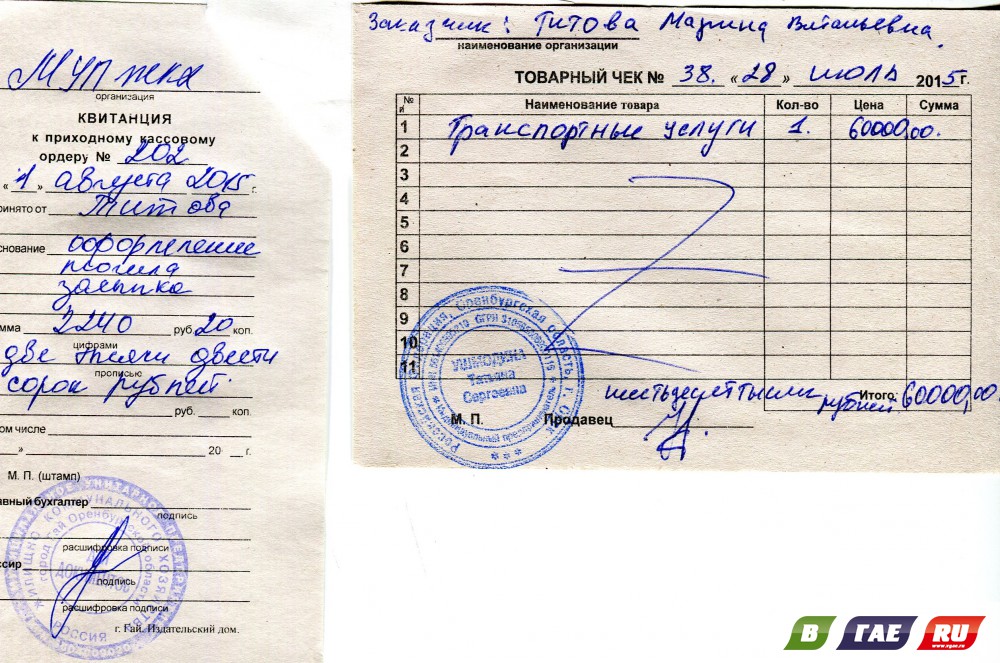 МУП ЖКХ
организация
КВИТАНЦИЯ
к приходному кассовому
ордеру № 202
«1» августа 2015 г.
ринято от Титова
снование оформление
могила
мма 2240 руб. 20 коп.
цифрами
две тысячи двести
прописью
сорок рублей.
руб. коп.
ом числе
» 20 г.
М. П. (штамп)
авный бухгалтер
подпись
расшифровка подписи
ссир
подпись
расшифровка подписи
г. Гай. Издательский дом.
ЖИЛИЩНО КОММУНАЛЬНОГО ХОЗЯЙСТВА
город Гай Оренбургской области
ДЛЯ
ДОКУМЕНТОВ
РОССИЯ
Заказчик: Титова Марина Витальевна.
наименование организации
ТОВАРНЫЙ ЧЕК № 38. «28» июль 2015 г.
№ Наименование товара Кол-во Цена Сумма
1 Транспортные услуги 1. 60000,00.
2
3
4
5
6
7
8
9
10
11
шестьдесят тысяч рублей Итого: 60000,00.
М. П. Продавец
Российская Федерация, Оренбургская область, г. Орск
Индивидуальный предприниматель
Татьяна
Сергеевна
В ГАЕ RU
www.vgae.ru